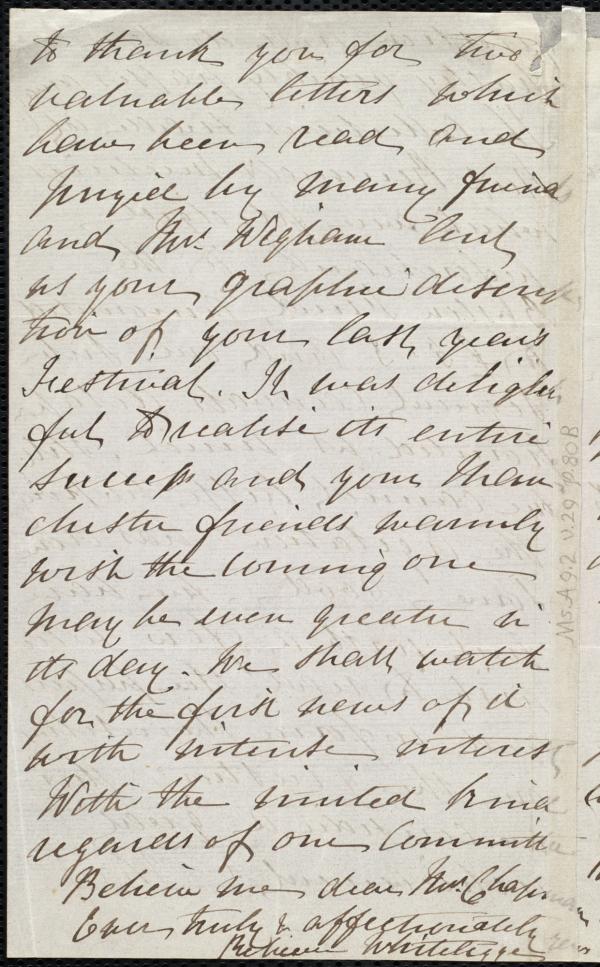 to thank you for two
valuable letters which
have been read and
prized by many friend
and Mrs. Wigham lent
us your graphic descrip
tion of your last year's
Festival. It was delight
ful to realise its entire
success and your Man
chester friends warmly
wish the coming one
may be even greater in
its day. We shall watch
for the first news of it
with intense interest
With the united kind
regards of our Committee
Believe me dear Mrs. Chapman
Ever truly & affectionately yours
Rebecca Whitelegge
Ms.A.9.2 v.29 p.80B